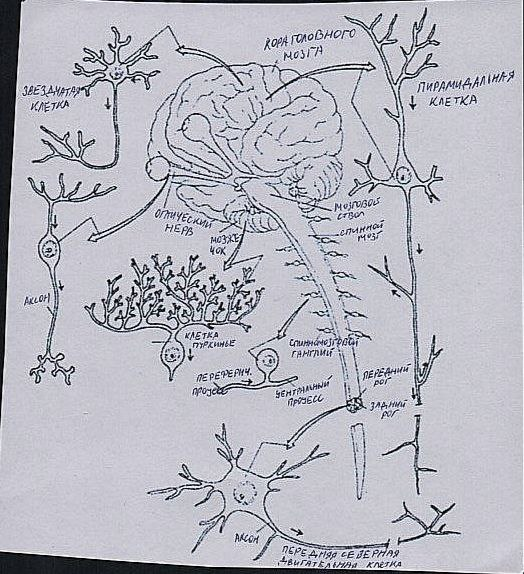 КОРА ГОЛОВНОГО
МОЗГА
ЗВЕЗДЧАТАЯ
КЛЕТКА
ПИРАМИДАЛЬНАЯ
КЛЕТКА
ОПТИЧЕСКИЙ
НЕРВ
МОЗЖЕ
ЧОК
МОЗГОВОЙ
СТВОЛ
СПИННОЙ
МОЗГ
АКСОН
КЛЕТКА
ПУРКИНЬЕ
СПИННОМОЗГОВОЙ
ГАНГЛИЙ
ПЕРЕФЕРИЧ.
ПРОЦЕСС
ЦЕНТРАЛЬНЫЙ
ПРОЦЕСС
ПЕРЕДНИЙ
РОГ
ЗАДНИЙ
РОГ
АКСОН
ПЕРЕДНЯЯ СЕВЕРНАЯ
ДВИГАТЕЛЬНАЯ КЛЕТКА